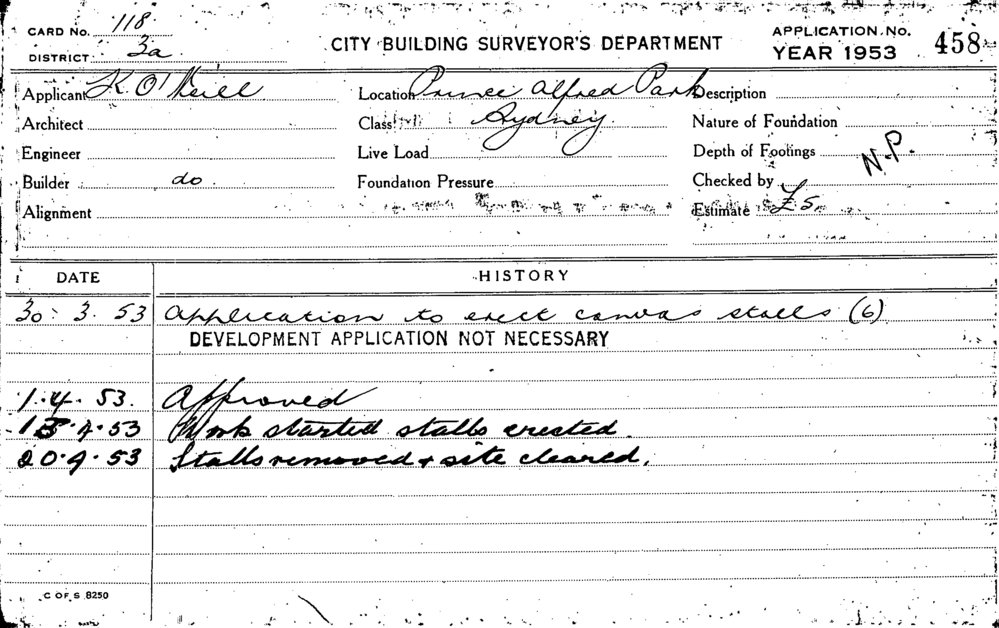 CARD No. 118
DISTRICT 3a
CITY BUILDING SURVEYOR'S DEPARTMENT
APPLICATION. No. 458
YEAR 1953
Applicant K. O'Neill
Location Prince Alfred Park
Description
Architect
Class Sydney.
Nature of Foundation
Engineer
Live Load
Depth of Footings
N.P.
Builder do
Foundation Pressure
Checked by
Alignment
Estimate £5
DATE HISTORY
30. 3. 53 Application to erect canvas stalls (6)
DEVELOPMENT APPLICATION NOT NECESSARY
1.4. 53. Approved
15.4.53 Work started stalls erected.
20.4.53 Stalls removed & site cleared.
C OF S 8250